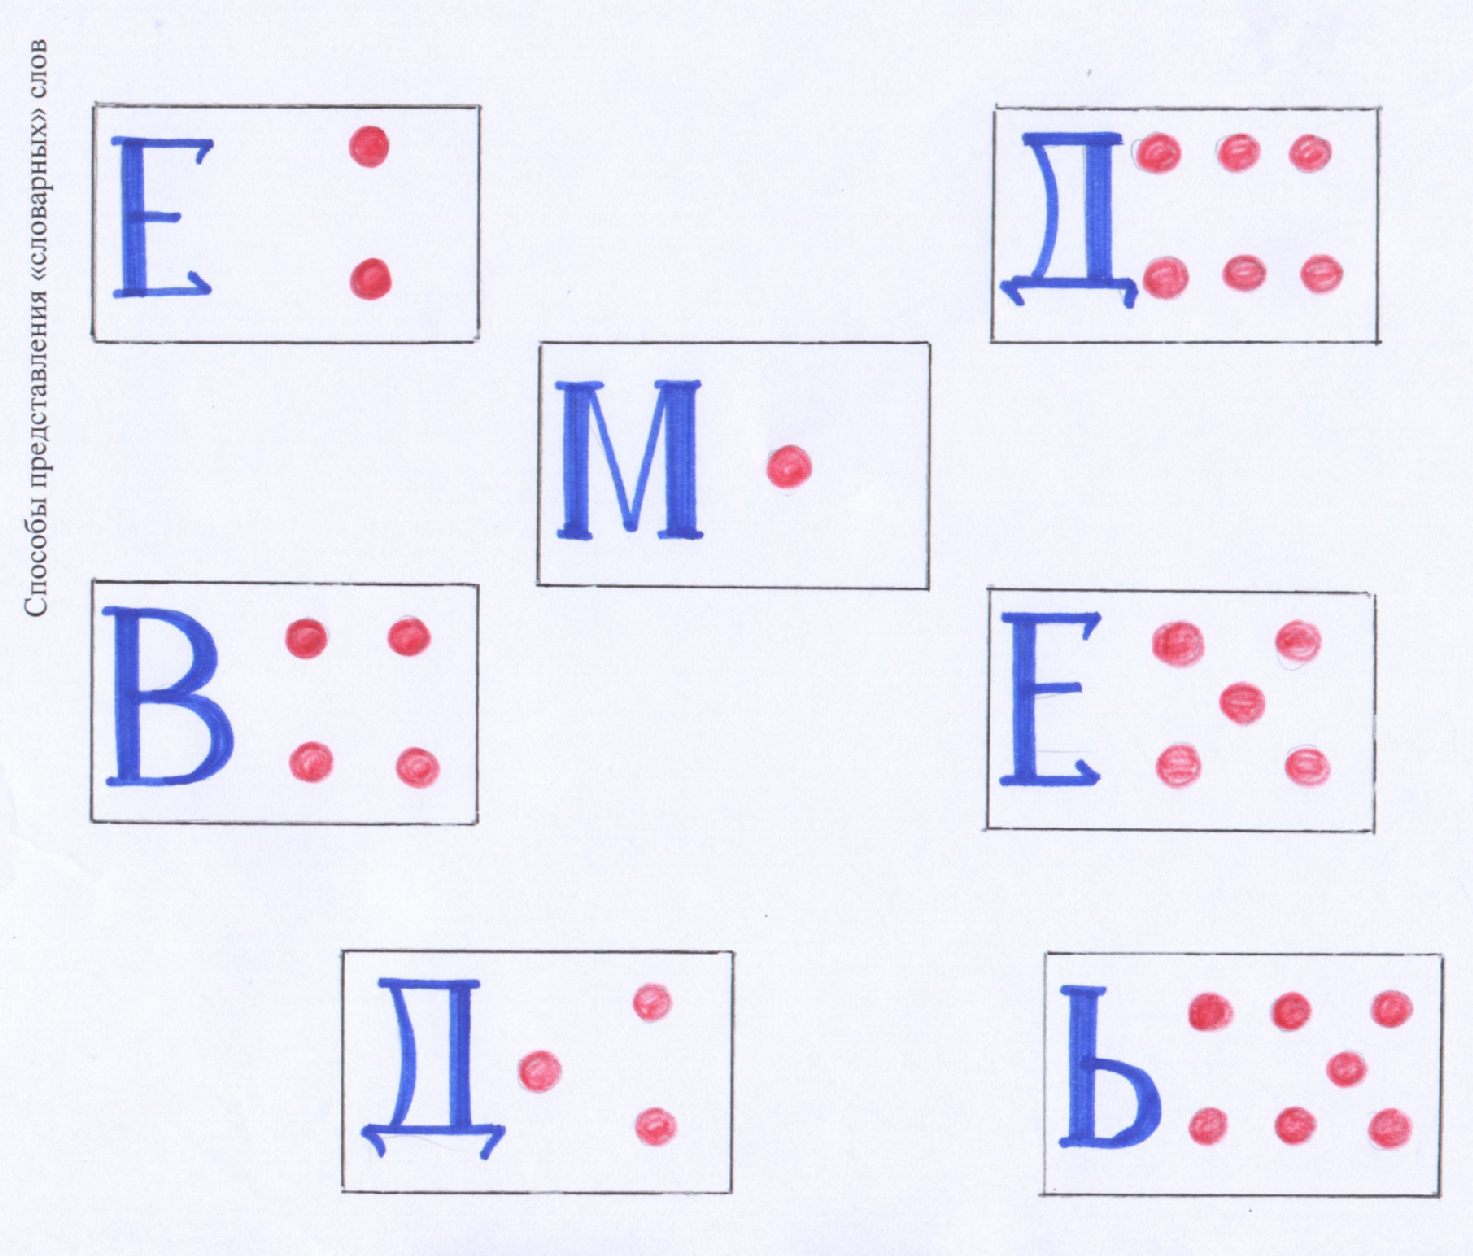 Способы представления «словарных» слов
Е
Д
М
В
Е
Д
Ь